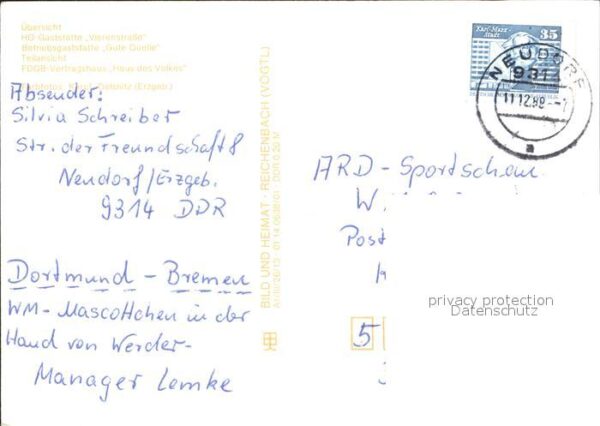 Übersicht
HO-Gaststätte „Vierenstraße"
Betriebsgaststätte „Gute Quelle"
Teilansicht
FDGB-Vertragshaus „Haus des Volkes"
(Erzgeb.)
Absender:
Silvia Schreiber
Str. der Freundschaft 8
Neudorf/Erzgeb.
9314 DDR
Dortmund - Bremen
WM-Mascottchen in der
Hand von Werder-
Manager Lemke
BILD UND HEIMAT · REICHENBACH (VOGTL)
Karl-Marx-
Stadt
35
NEUDORF
9314
11.12.89
a
ARD-Sportschau
W.
Post
5
privacy protection
Datenschutz